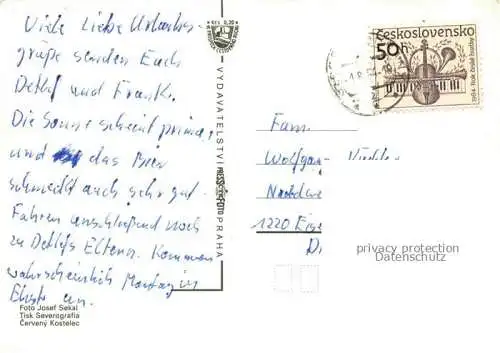 Viele Liebe Urlaubs-
grüße senden Euch
Detlef und Frank.
Die Sonne scheint prima,
und das Bier
schmeckt auch sehr gut.
Fahren anschließend noch
zu Detlefs Eltern. Kommen
wahrscheinlich Montag in
an.
Foto Josef Sekal
Tisk Severografia
Červený Kostelec
VYDAVATELSTVÍ PRESSFOTO PRAHA
Československo
50h
1984 Rok české hudby
Fam.
Wolfgan
1220 Eise
D
privacy protection
Datenschutz